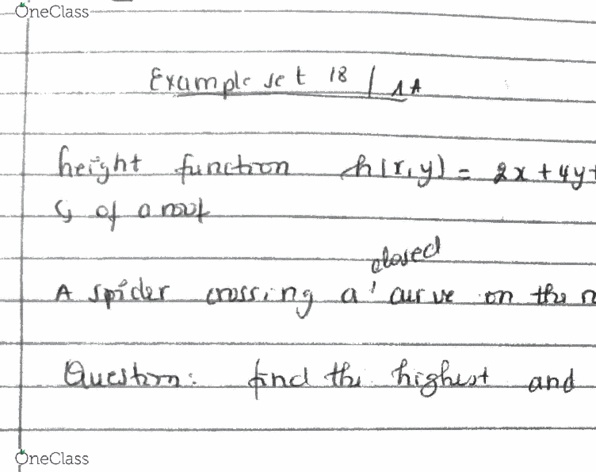 OneClass
Example set 18 / 1A
height function h(x,y) = 2x + 4y +
↳ of a roof
closed
A spider crossing a curve on the
Question: find the highest and
OneClass